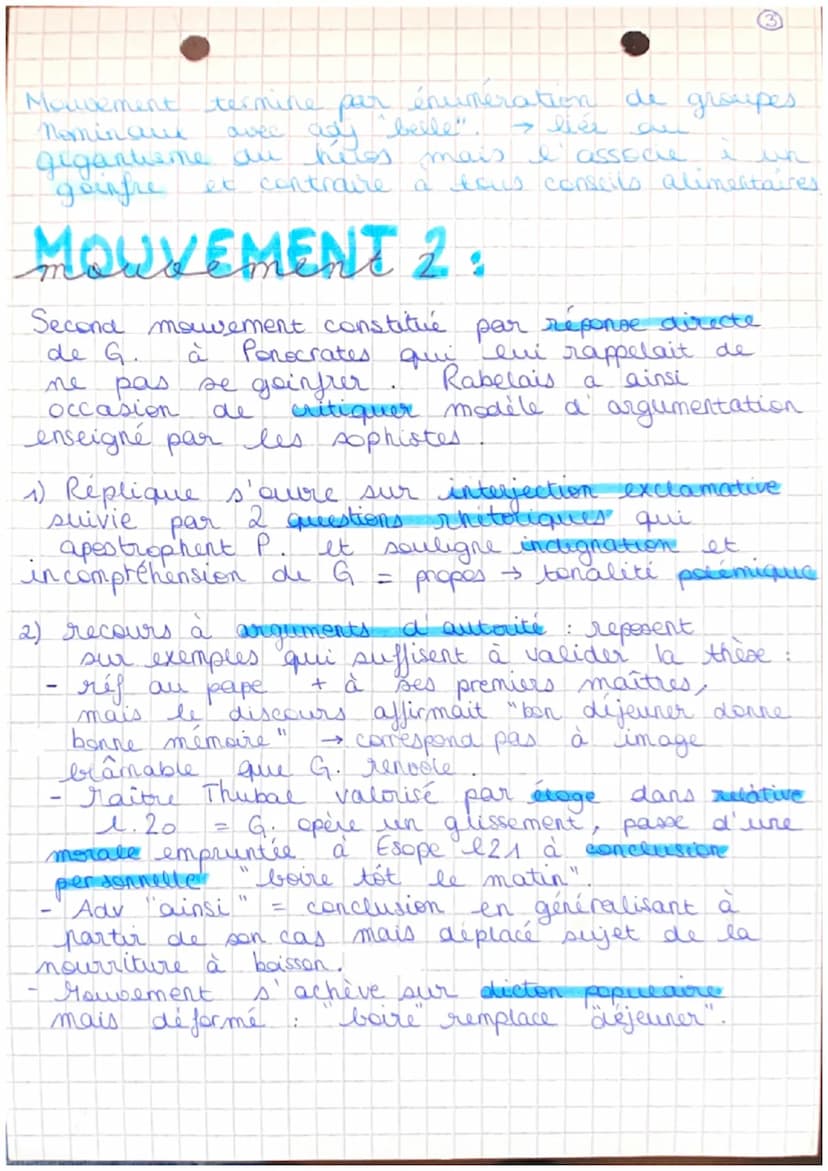 3
Mouvement termine par énumération de groupes
nominaux avec adj "belle". → liée au
gigantisme du héros mais l'associe à un
goinfre et contraire à tous conseils alimentaires
MOUVEMENT 2 :
mouvement
Second mouvement constitué par réponse directe
de G. à Ponocrates qui lui rappelait de
ne pas se goinfrer. Rabelais a ainsi
occasion de critiquer modèle d'argumentation
enseigné par les sophistes.
1) Réplique s'ouvre sur interjection exclamative
suivie par 2 questions rhétoriques qui
apostrophent P. et souligne indignation et
incompréhension de G = propos → tonalité polémique
2) recours à arguments d'autorité : reposent
sur exemples qui suffisent à valider la thèse :
- réf au pape + à ses premiers maîtres,
mais le discours affirmait "bon déjeuner donne
bonne mémoire" → correspond pas à image
blâmable que G. renvoie.
- Maître Thubal valorisé par éloge dans relative
l.20 = G. opère un glissement, passe d'une
morale empruntée à Esope l21 à conclusion
personnelle "boire tôt le matin".
- Adv "ainsi" = conclusion en généralisant à
partir de son cas mais déplacé sujet de la
nourriture à boisson.
- Mouvement s'achève sur dicton populaire
mais déformé : "boire" remplace "déjeuner".